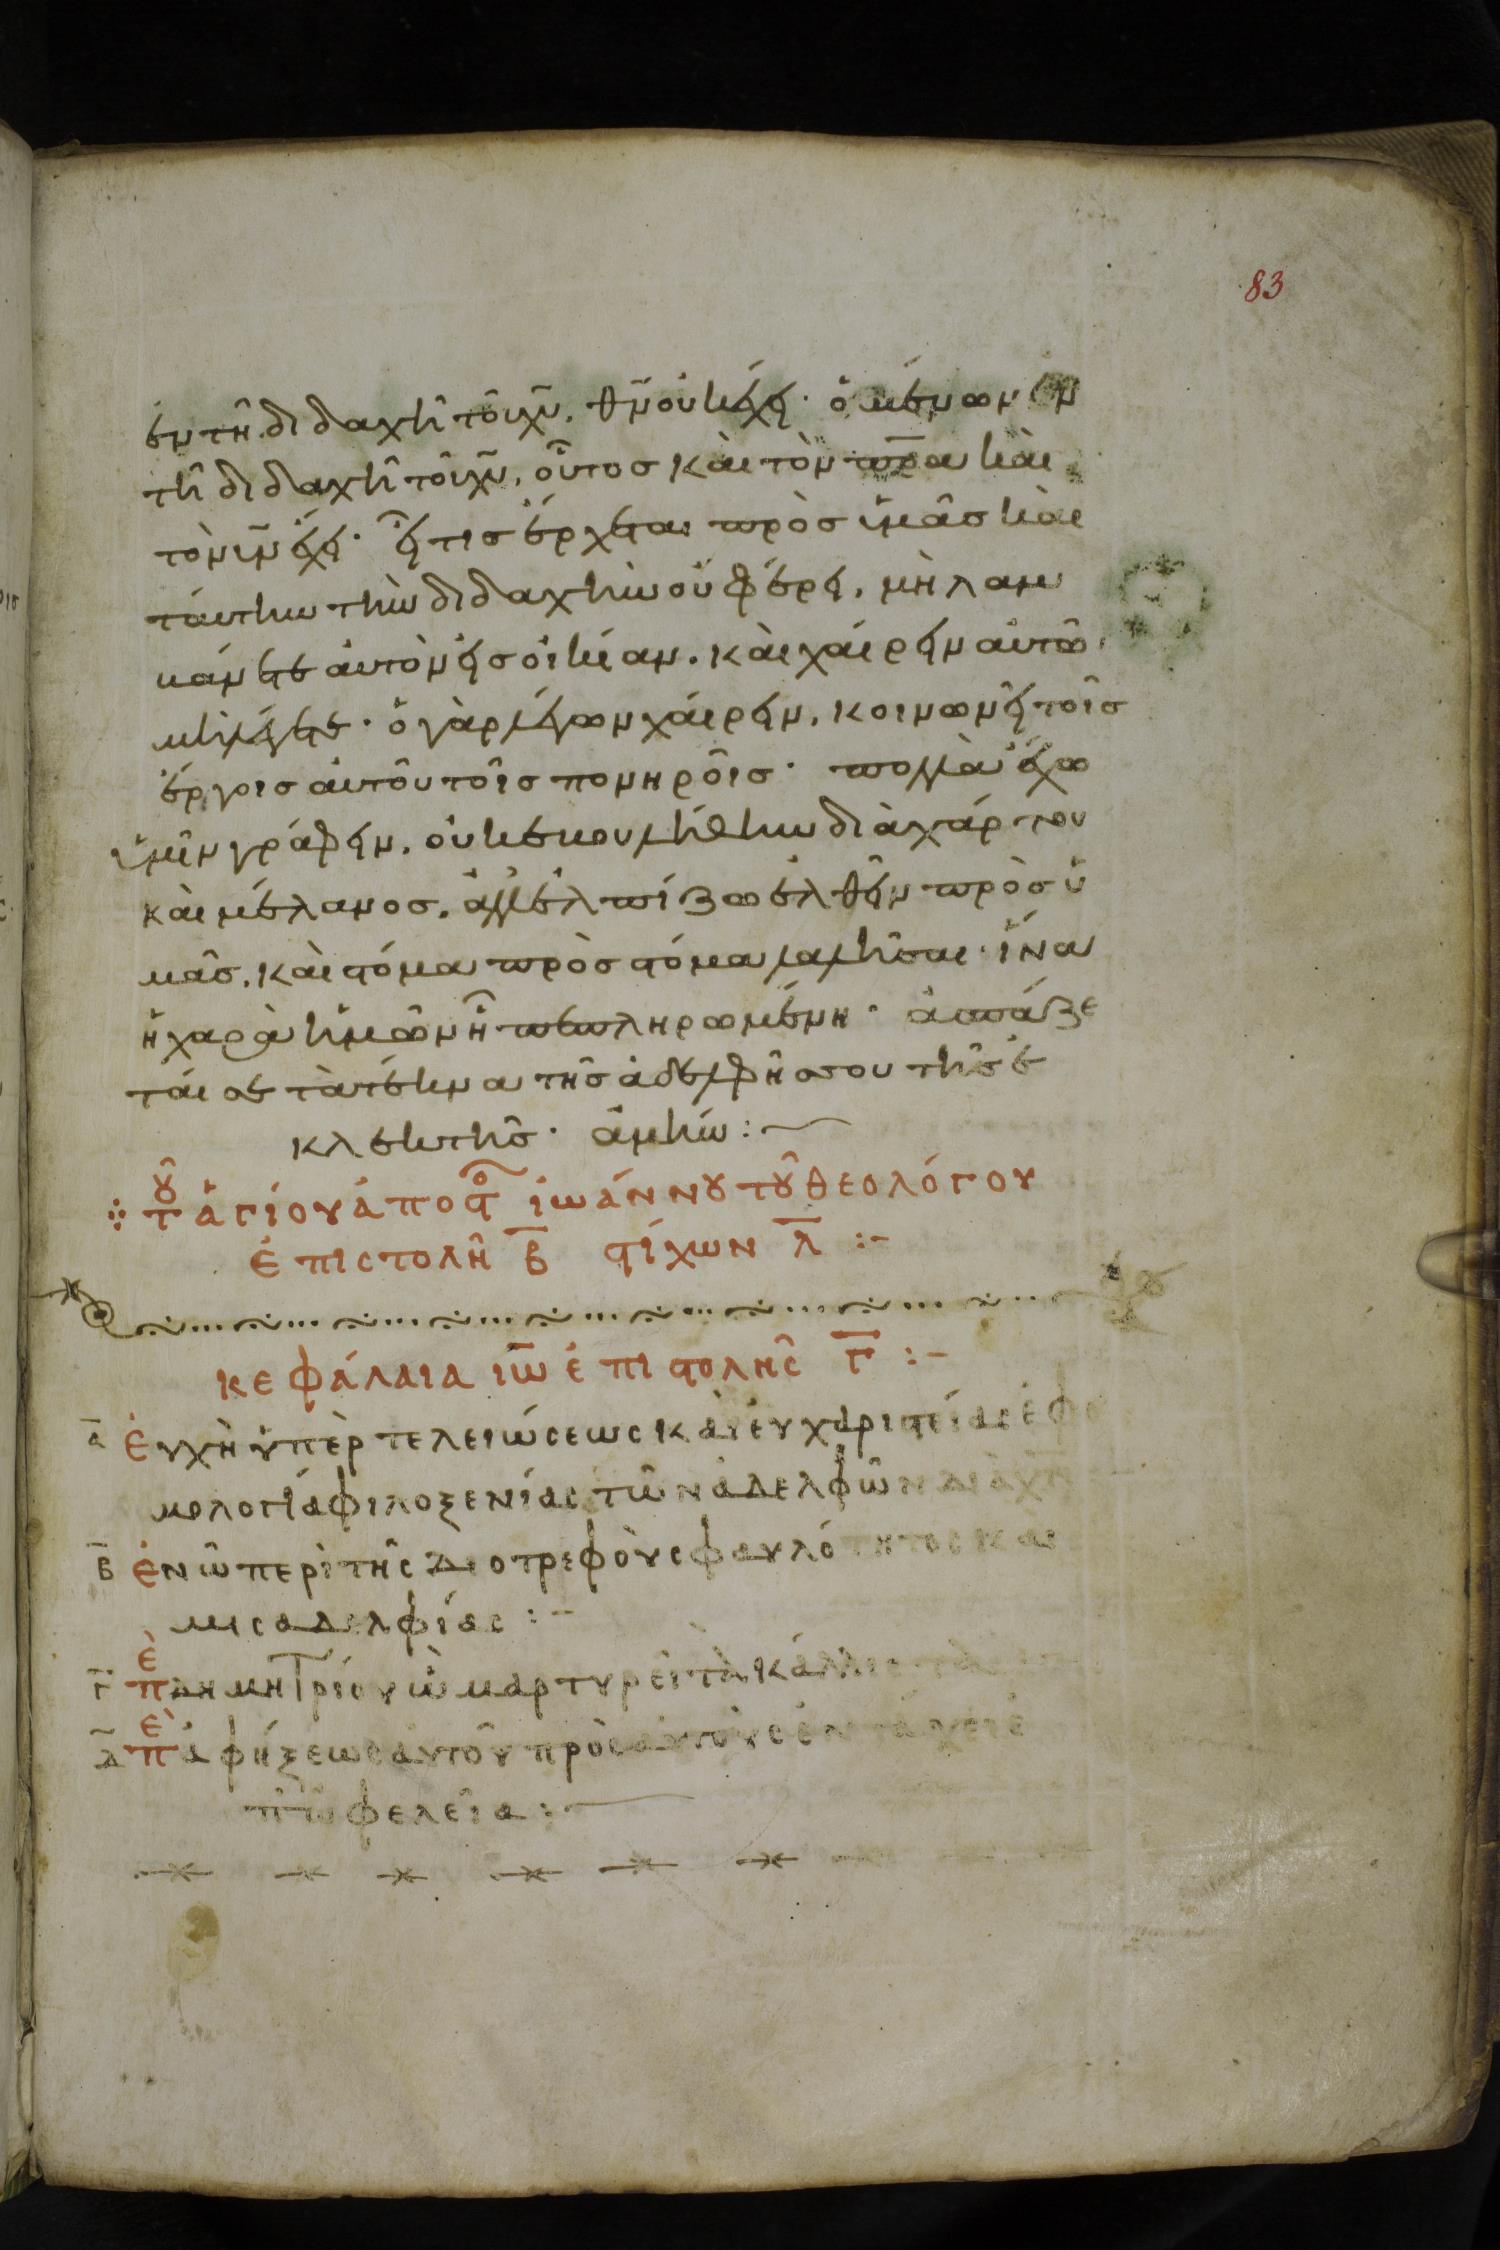 83
ἐν τῆ διδαχῆ τοῦ χυ, θν οὐκ ἔχει· ὁ μένων ἐν
τῆ διδαχῆ τοῦ χυ, οὗτος καὶ τὸν πρα καὶ
τὸν υν ἔχει· εἴ τις ἔρχεται πρὸς ὑμᾶς καὶ
ταύτην τὴν διδαχὴν οὐ φέρει, μὴ λαμ
βάνετε αὐτὸν εἰς οἰκίαν. καὶ χαίρειν αὐτῶ
μὴ λέγετε· ὁ γὰρ λέγων χαίρειν, κοινωνεῖ τοῖς
ἔργοις αὐτοῦ τοῖς πονηροῖς· πολλὰ ἔχω
ὑμῖν γράφειν, οὐκ ἐβουλήθην διὰ χάρτου
καὶ μέλανος. ἀλλ' ἐλπίζω ἐλθεῖν πρὸς ὑ
μᾶς, καὶ στόμα πρὸς στόμα λαλῆσαι· ἵνα
ἡ χαρὰ ἡμῶν ἦ πεπληρωμένη· ἀσπάζε
ταί σε τὰ τέκνα τῆς ἀδελφῆς σου τῆς ἐ
κλεκτῆς· ἀμήν :
τοῦ ἁγίου ἀποστό ἰωάννου τοῦ θεολόγου
ἐπιστολὴ β στίχων λ :-
κεφάλαια ιω ἐπιστολῆς γ :-
α εὐχὴ ὑπὲρ τελειώσεως καὶ εὐχαριστείας ἐφ
μολογία φιλοξενίας τῶν ἀδελφῶν διὰ χν
β ἐν ὧ περὶ τῆς διοτρεφοὺς φαυλότητος καὶ
μισαδελφίας :-
γ πε δημητρίου ὧ μαρτυρεῖ τὰ κάλλιστα
δ πε ἀφήξεως αὐτοῦ πρὸς αὐτοὺς ἐν τάχει ἐ
π' ὠφελεία :